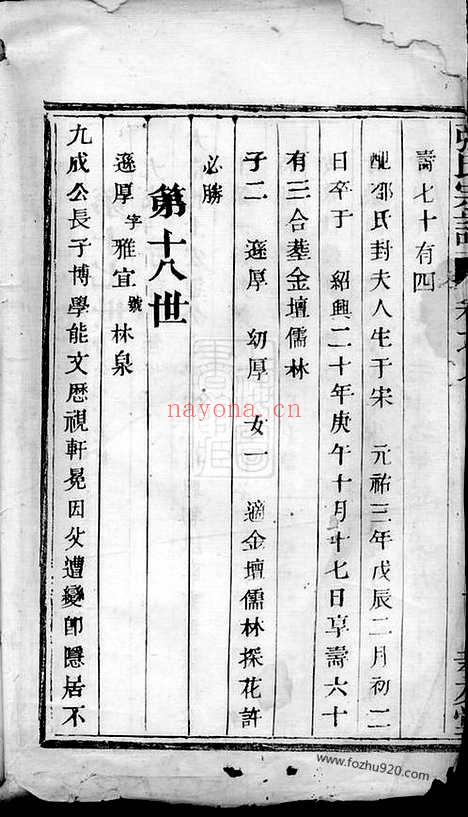 壽七十有四
配鄒氏封夫人生于宋 元祐三年戊辰二月初二
日卒于 紹興二十年庚午十月十七日享壽六十
有三合塟金壇儒林
子二 遜厚 幼厚 女一 適金壇儒林探花許
必勝
第十八世
遜厚字雅宜號林泉
九成公長子博學能文歷視軒冕因父遭變卽隱居不
nayona.cn
www.fozhu920.com